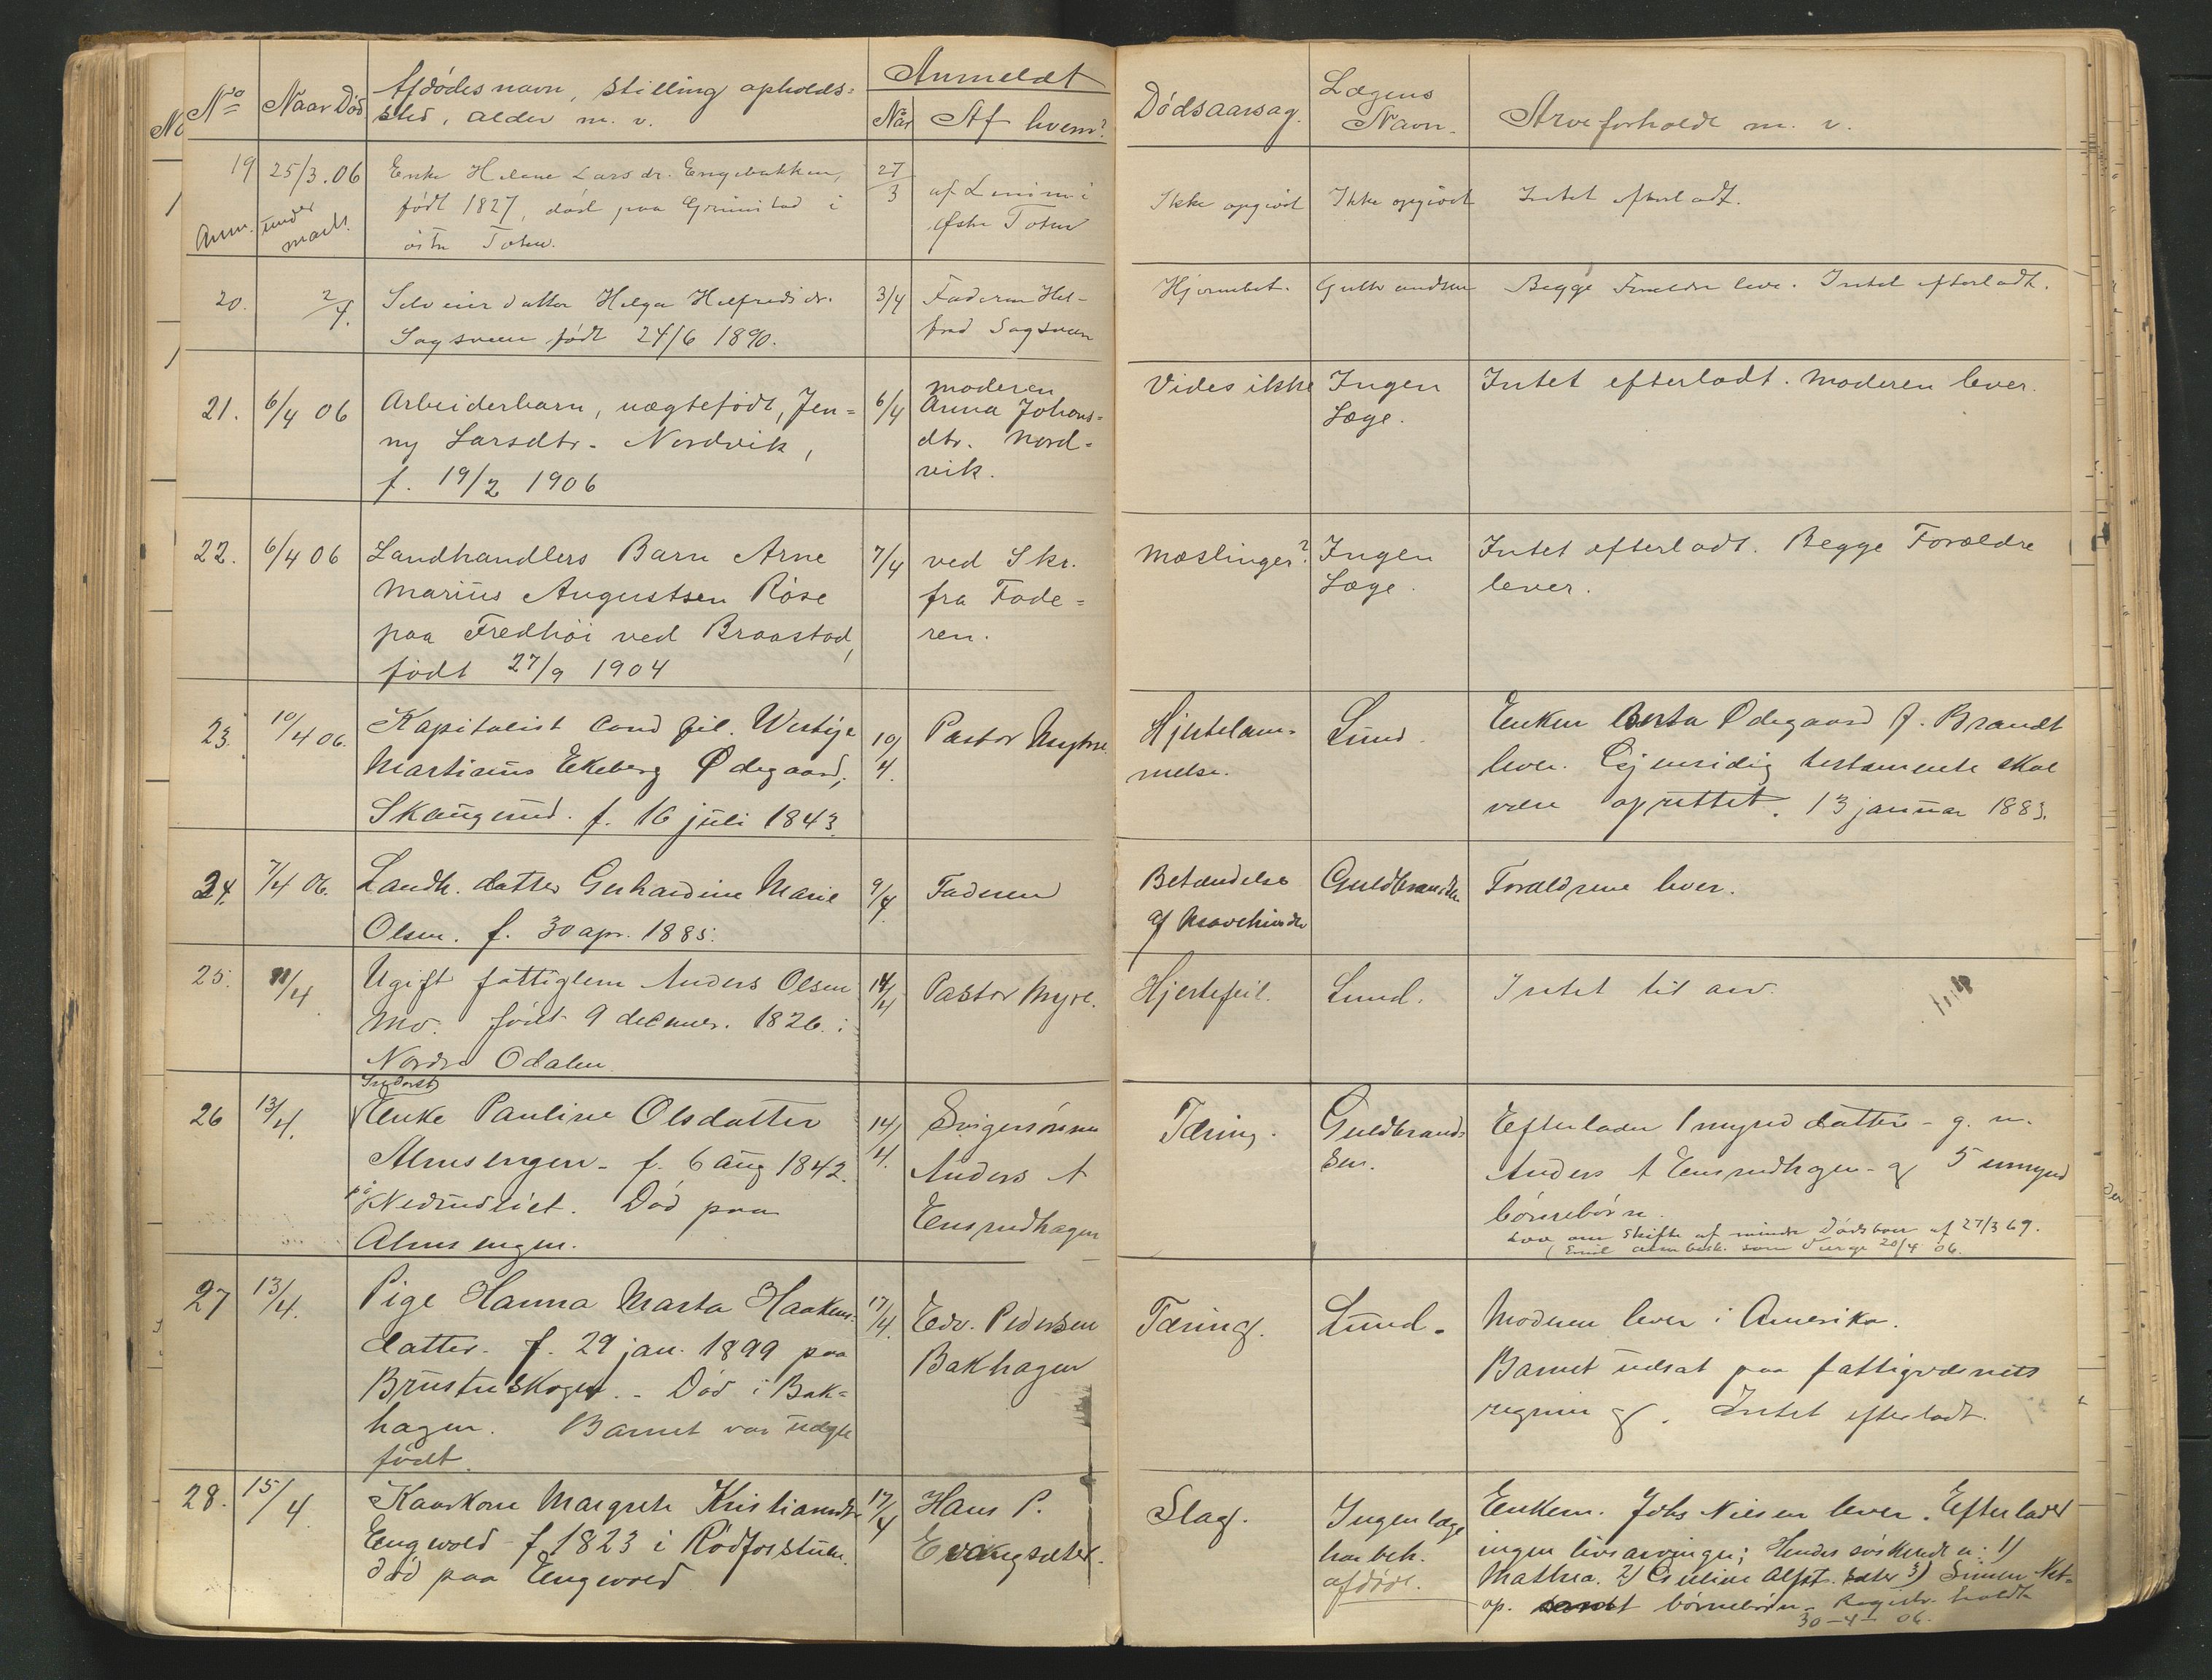 No
Nro
Naar Død
Afdødes navn, stilling opholds=
sted, alder m. v.
Anmeldt
Når
Af hvem?
Dødsaarsag.
Lægens
Navn.
Arveforholde m. v.
19
Anm.
25/3.06
under
marts.
Enke Helene Larsdr. Engebakken,
født 1827, død paa Grimstad i
østre Toten.
27/3
af Lensm i
Østre Toten
Ikke opgivet
Ikke opgivet
Intet efterladt.
20.
2/4.
Selveierdatter Helga Helfredsdr.
Sagsveen født 24/6 1890.
3/4
Faderen Hel-
fred Sagsveen
Hjernebet.
Gulbrandsen
Begge Forældre leve. Intet efterladt.
21.
6/4 06
Arbeiderbarn, uægtefødt, Jen=
ny Larsdtr. Nordvik,
f. 19/2 1906
6/4
Moderen
Anna Johans=
dtr. Nord=
vik.
Vides ikke
Ingen
Læge.
Intet efterladt. Moderen lever.
22.
6/4 06
Landhandlers Barn Arne
Marius Augustsen Røse
paa Fredhøi ved Braastad,
født 27/9 1904
7/4
ved Skr.
fra Fade=
ren.
Mæslinger?
Ingen
Læge.
Intet efterladt. Begge Forældre
lever.
23.
10/4 06.
Kapitalist cand fil.
Martinius Ekeberg Ødegaard,
Skaugerud. f. 16 juli 1843.
10/4.
Pastor Myhre
Hjertelam=
melse.
Lund.
Enken Berta Ødegaard f. Brandt
lever. Gjensidig testamente skal
være oprettet. 13 januar 1883.
24.
7/4 06.
Landh. datter Gerhardine Marie
Olsen. f. 30 apr. 1885.
9/4
Faderen
Betændelse
af Mavehinden
Guldbrandsen
Forældrene lever.
25.
11/4
Ugift fattiglem Anders Olsen
Mo. født 9 decemer. 1826 i
Nordre Odalen
14/4
Pastor Myre.
Hjertefeil.
Lund.
Intet til arv.
26
13/4.
Inderst
Enke Pauline Olsdatter
Almsengen - f. 6 aug 1842.
på Nedrudeiet. Død paa
Almsengen.
14/4.
Svigersønnen
Anders A
Ensrudhagen
Tæring.
Guldbrand=
sen.
Efterlader 1 mynd datter - g. m.
Anders A Ensrudhagen - og 5 umynd
børnebørn.
Lov om Skifte af mindre Dødsboer af 27/3 69.
som Verge 20/4 06.
27
13/4.
Pige Hanna Marta Haakens=
datter. f. 29 jan. 1899 paa
Brustuskogen. - Død i Bak=
hagen. Barnet var uægte
født.
17/4.
Edv. Pedersen
Bakhagen
Tæring.
Lund.
Moderen lever i Amerika.
Barnet udsat paa fattigvæsnets
regning. Intet efterladt.
28.
15/4.
Kaarkone Margrete Kristiansdtr
Engvold - f 1823 i Rødfosstuen.
død paa Engvold
17/4
Hans P.
Evangsæter.
Slag.
Ingen læge
har beh.
afdøde.
Enkem. Johs Nilsen lever. Efterlader
ingen livsarvinger; Hendes søskende er: 1)
Mathea. 2) 3) Simen
op. børnebørn. Registr. holdt
30-4-06.